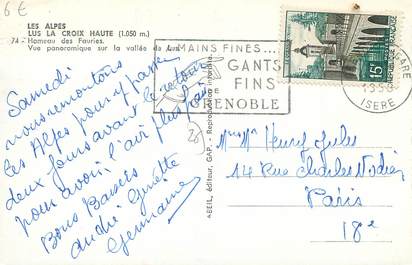 6 €
LES ALPES
LUS LA CROIX HAUTE (1.050 m.)
74 - Hameau des Fauries.
Vue panoramique sur la vallée de Lus.
MAINS FINES...
GANTS
FINS
DE
GRENOBLE
15F
GARE
ISERE
ABEIL, éditeur, GAP. - Reproduction interdite.
Samedi
nous remontons
les Alpes pour y passer
deux jours avant le retour
pour avoir l'air plus frais
Bons Baisers
André Ginette
Germaine
Mr Mme Henry Jules
14 Rue Charles Nodier
Paris
18e